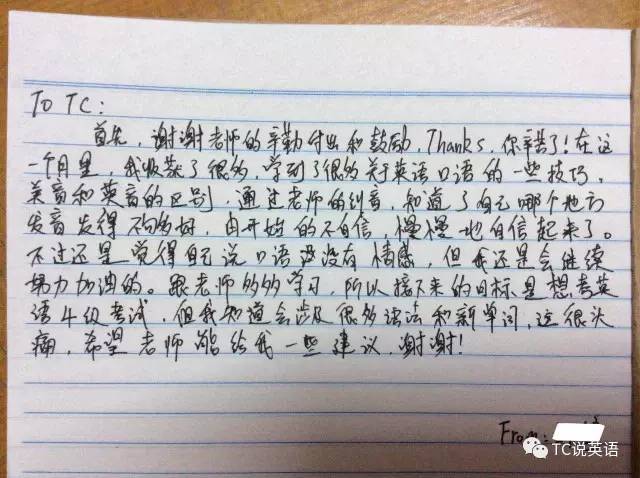 To TC:
首先，谢谢老师的辛勤付出和鼓励，Thanks，你辛苦了！在这
一个月里，我收获了很多，学到了很多关于英语口语的一些技巧，
美音和英音的区别，通过老师的纠音，知道了自己哪个地方
发音发得不够好，由开始的不自信，慢慢地自信起来了。
不过还是觉得自己说口语没有情感，但我还是会继续
努力加油的。跟老师多多学习，所以接下来的目标是想考英
语4级考试，但我知道会涉及很多语法和新单词，这很头
痛，希望老师能给我一些建议，谢谢！
From:
TC说英语